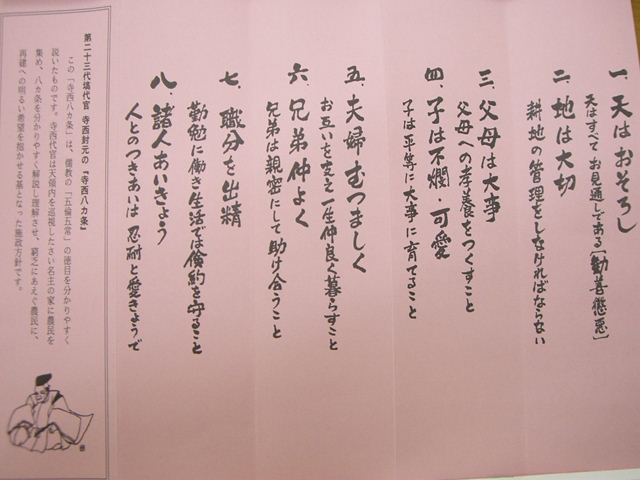 一、天はおそろし
天はすべてお見通しである［勧善懲悪］
二、地は大切
耕地の管理をしなければならない
三、父母は大事
父母への孝養をつくすこと
四、子は不憫・可愛
子は平等に大事に育てること
五、夫婦むつましく
お互いを支え一生仲良く暮らすこと
六、兄弟仲よく
兄弟は親密にして助け合うこと
七、職分を出精
勤勉に働き生活では倹約を守ること
八、諸人あいきょう
人とのつきあいは忍耐と愛きょうで
第二十三代塙代官 寺西封元の『寺西八カ条』
この「寺西八カ条」は、儒教の「五倫五常」の徳目を分かりやすく
説いたものです。寺西代官は天領内を巡視したさい名主の家に農民を
集め、八カ条を分かりやすく解説し理解させ、窮乏にあえぐ農民に、
再建への明るい希望を抱かせる基となった施政方針です。